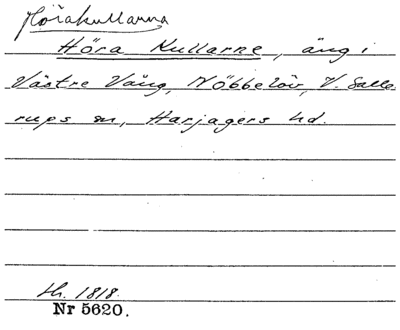 Hörakullarna
Höra Kullarne, äng i
Västre Vång, Nöbbelöv, V. Salle
rups sn, Harjagers hd.
Lh. 1818.
Nr 5620.